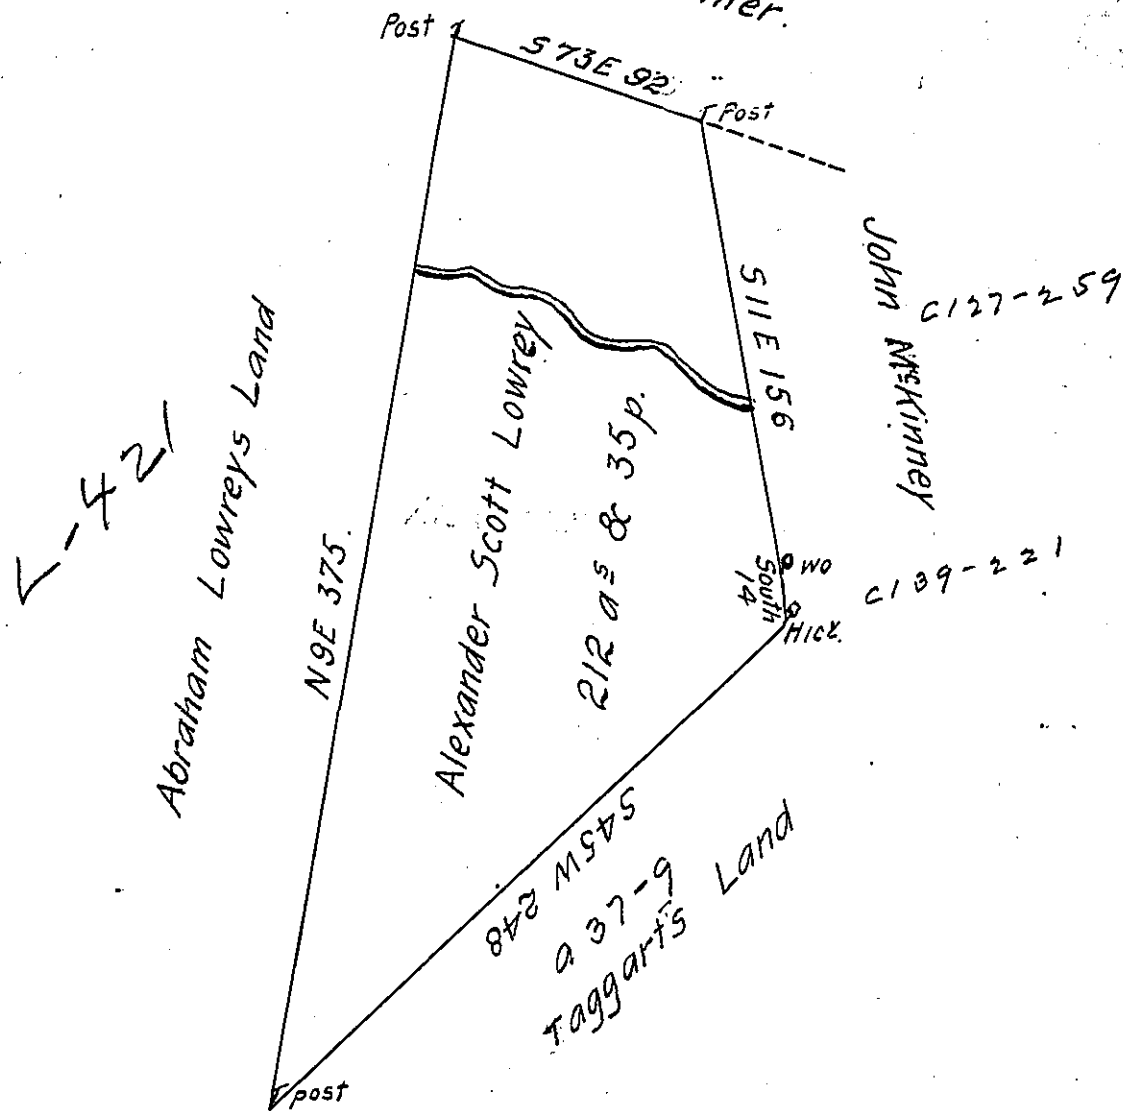 Post
S 73 E 92
Post
John McKinney
C127-259
S 11 E 156
L-421
Abraham Lowreys Land
N9E 375.
Alexander Scott Lowrey
212 as & 35 p.
WO
South 14
Hick.
C139-221
S45W 248
a 37-9
Taggarts Land
post